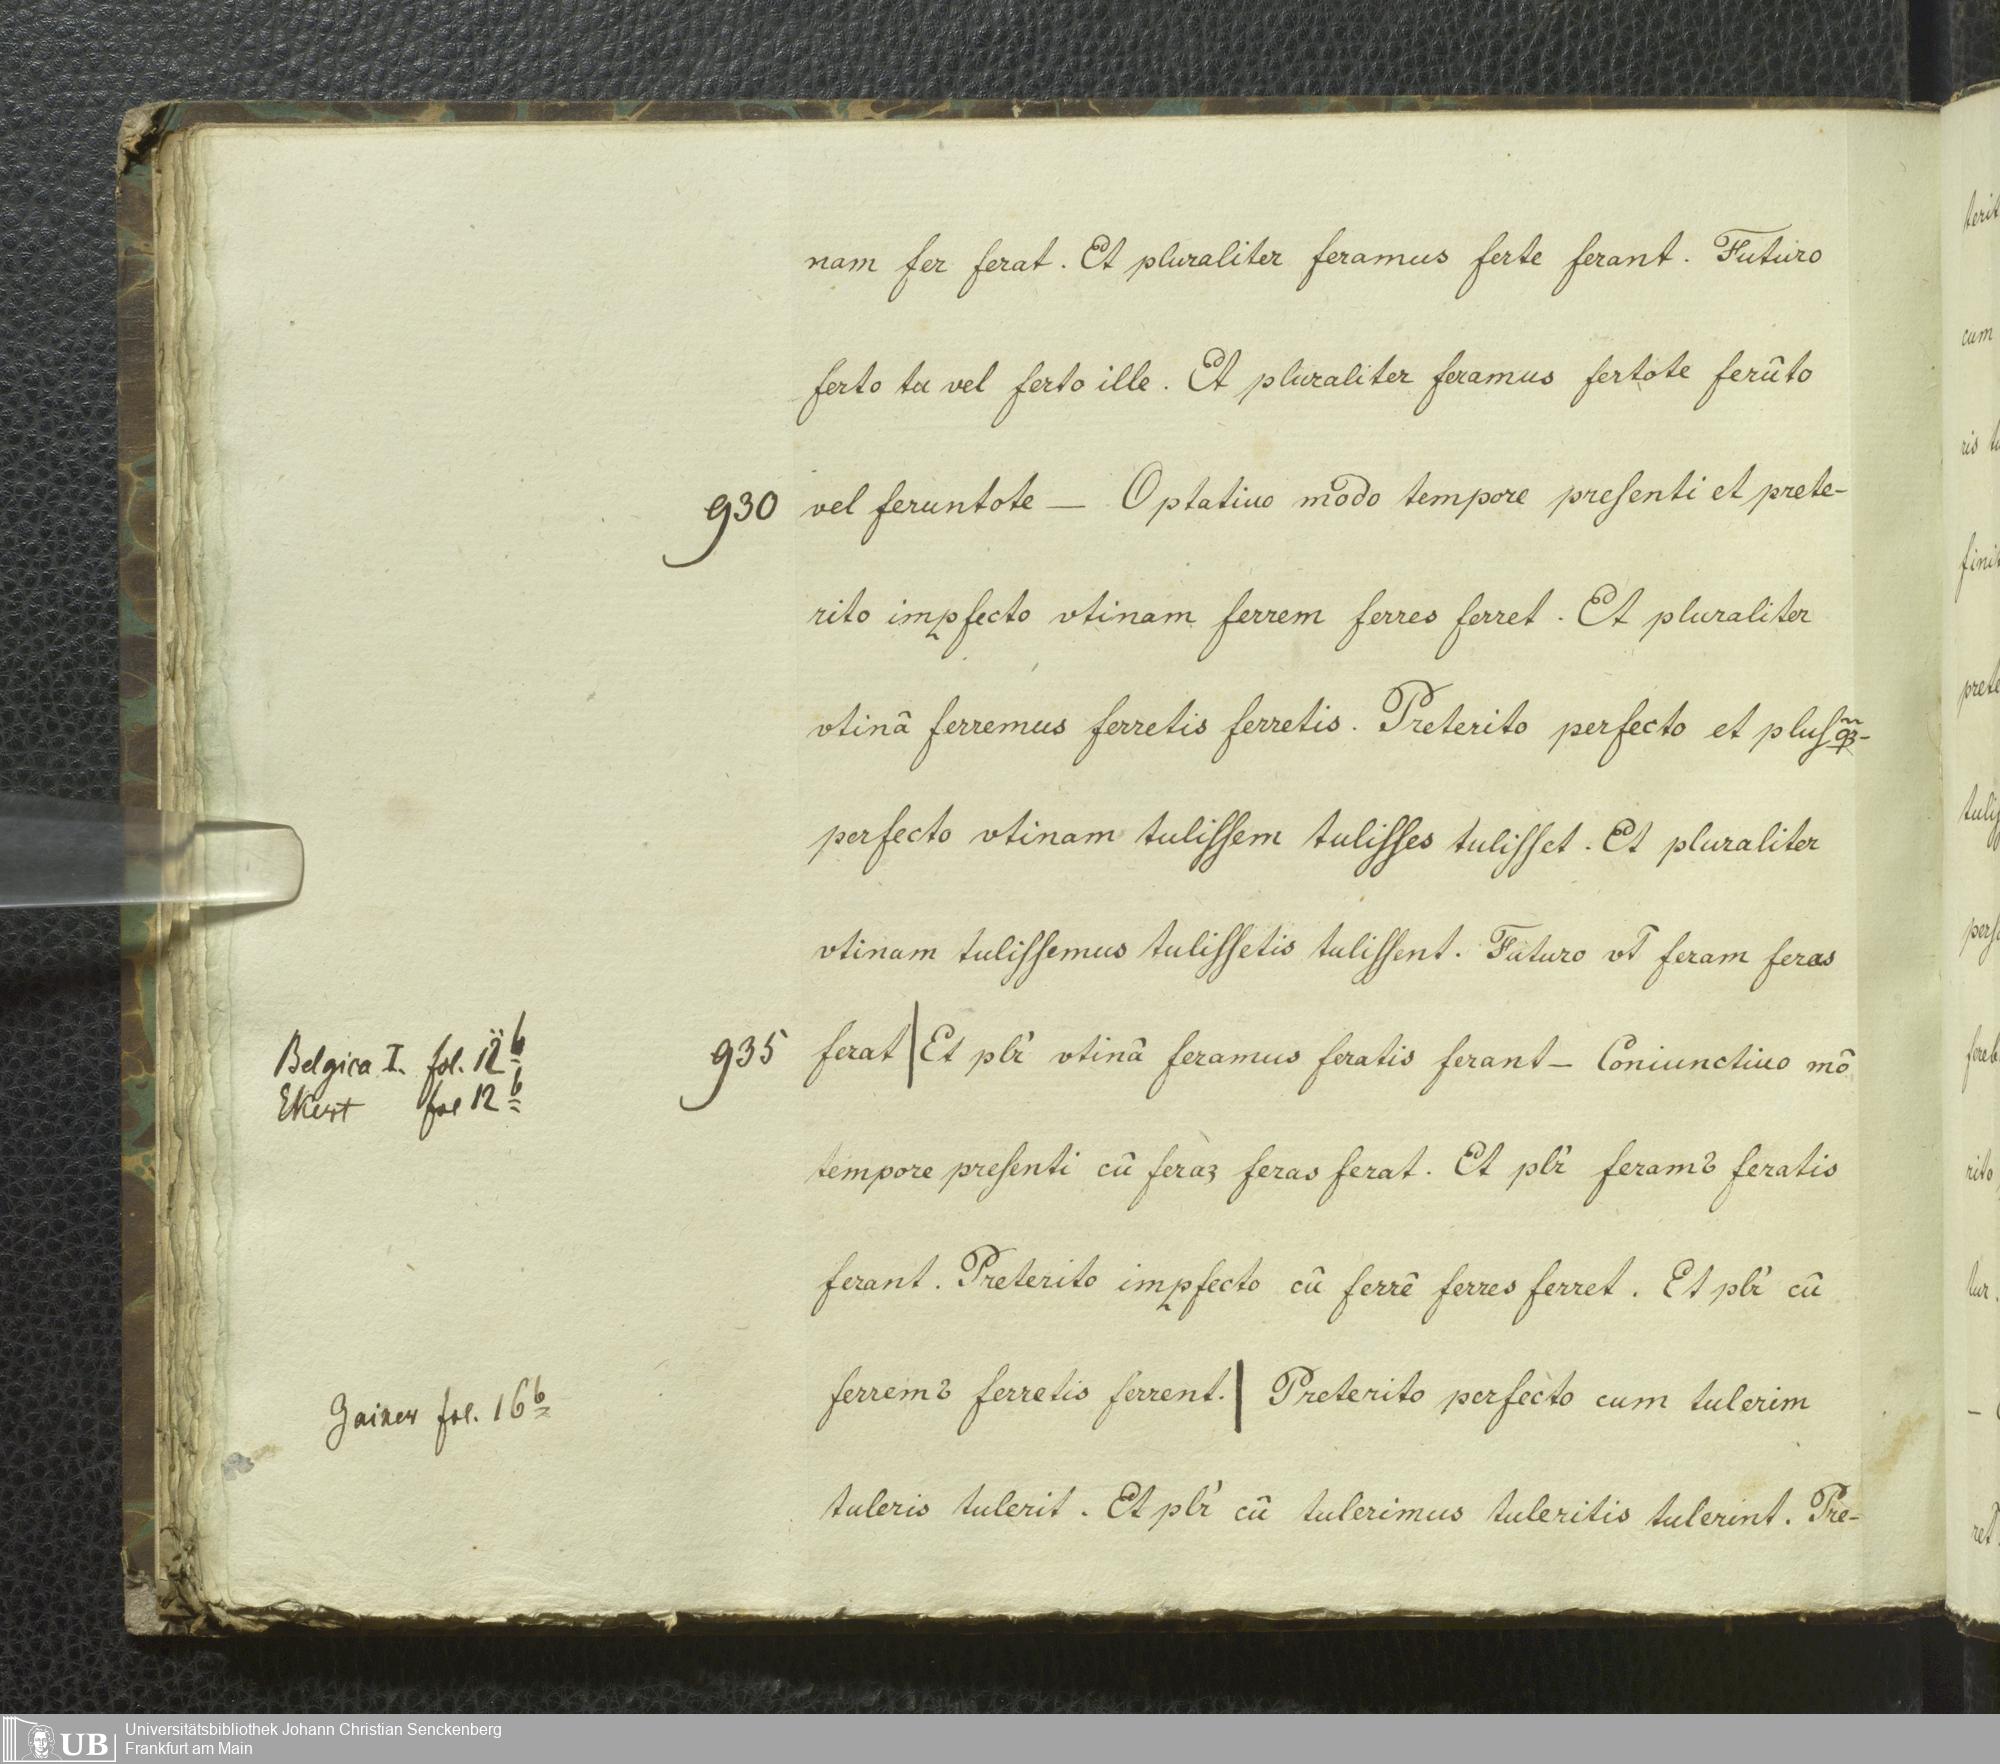 nam fer ferat. Et pluraliter feramus ferte ferant. Futuro
ferto tu vel ferto ille. Et pluraliter feramus fertote ferūto
930 vel feruntote — Optatiuo mōdo tempore preſenti et prete-
rito imꝑfecto vtinam ferrem ferres ferret. Et pluraliter
vtinā ferremus ferretis ferretis. Preterito perfecto et pluſꝙ̃-
perfecto vtinam tuliſſem tuliſſes tuliſſet. Et pluraliter
vtinam tuliſſemus tuliſſetis tuliſſent. Futuro vt̄ feram feras
Belgica I. fol. 12b
Ekert fol 12b
935 ferat | Et plr̕ vtinā feramus feratis ferant — Coniunctiuo mō
tempore preſenti cū feraꝫ feras ferat. Et plr̕ feramꝰ feratis
ferant. Preterito imꝑfecto cū ferrē ferres ferret. Et plr̕ cū
Gaixer fol. 16b
ferremꝰ ferretis ferrent. | Preterito perfecto cum tulerim
tuleris tulerit. Et plr̕ cū tulerimus tuleritis tulerint. Pre-
terit
cum
ris tu
finit
prete
tuliſ
perf
fereb
rito
tur.
ret
UB Universitätsbibliothek Johann Christian Senckenberg
Frankfurt am Main